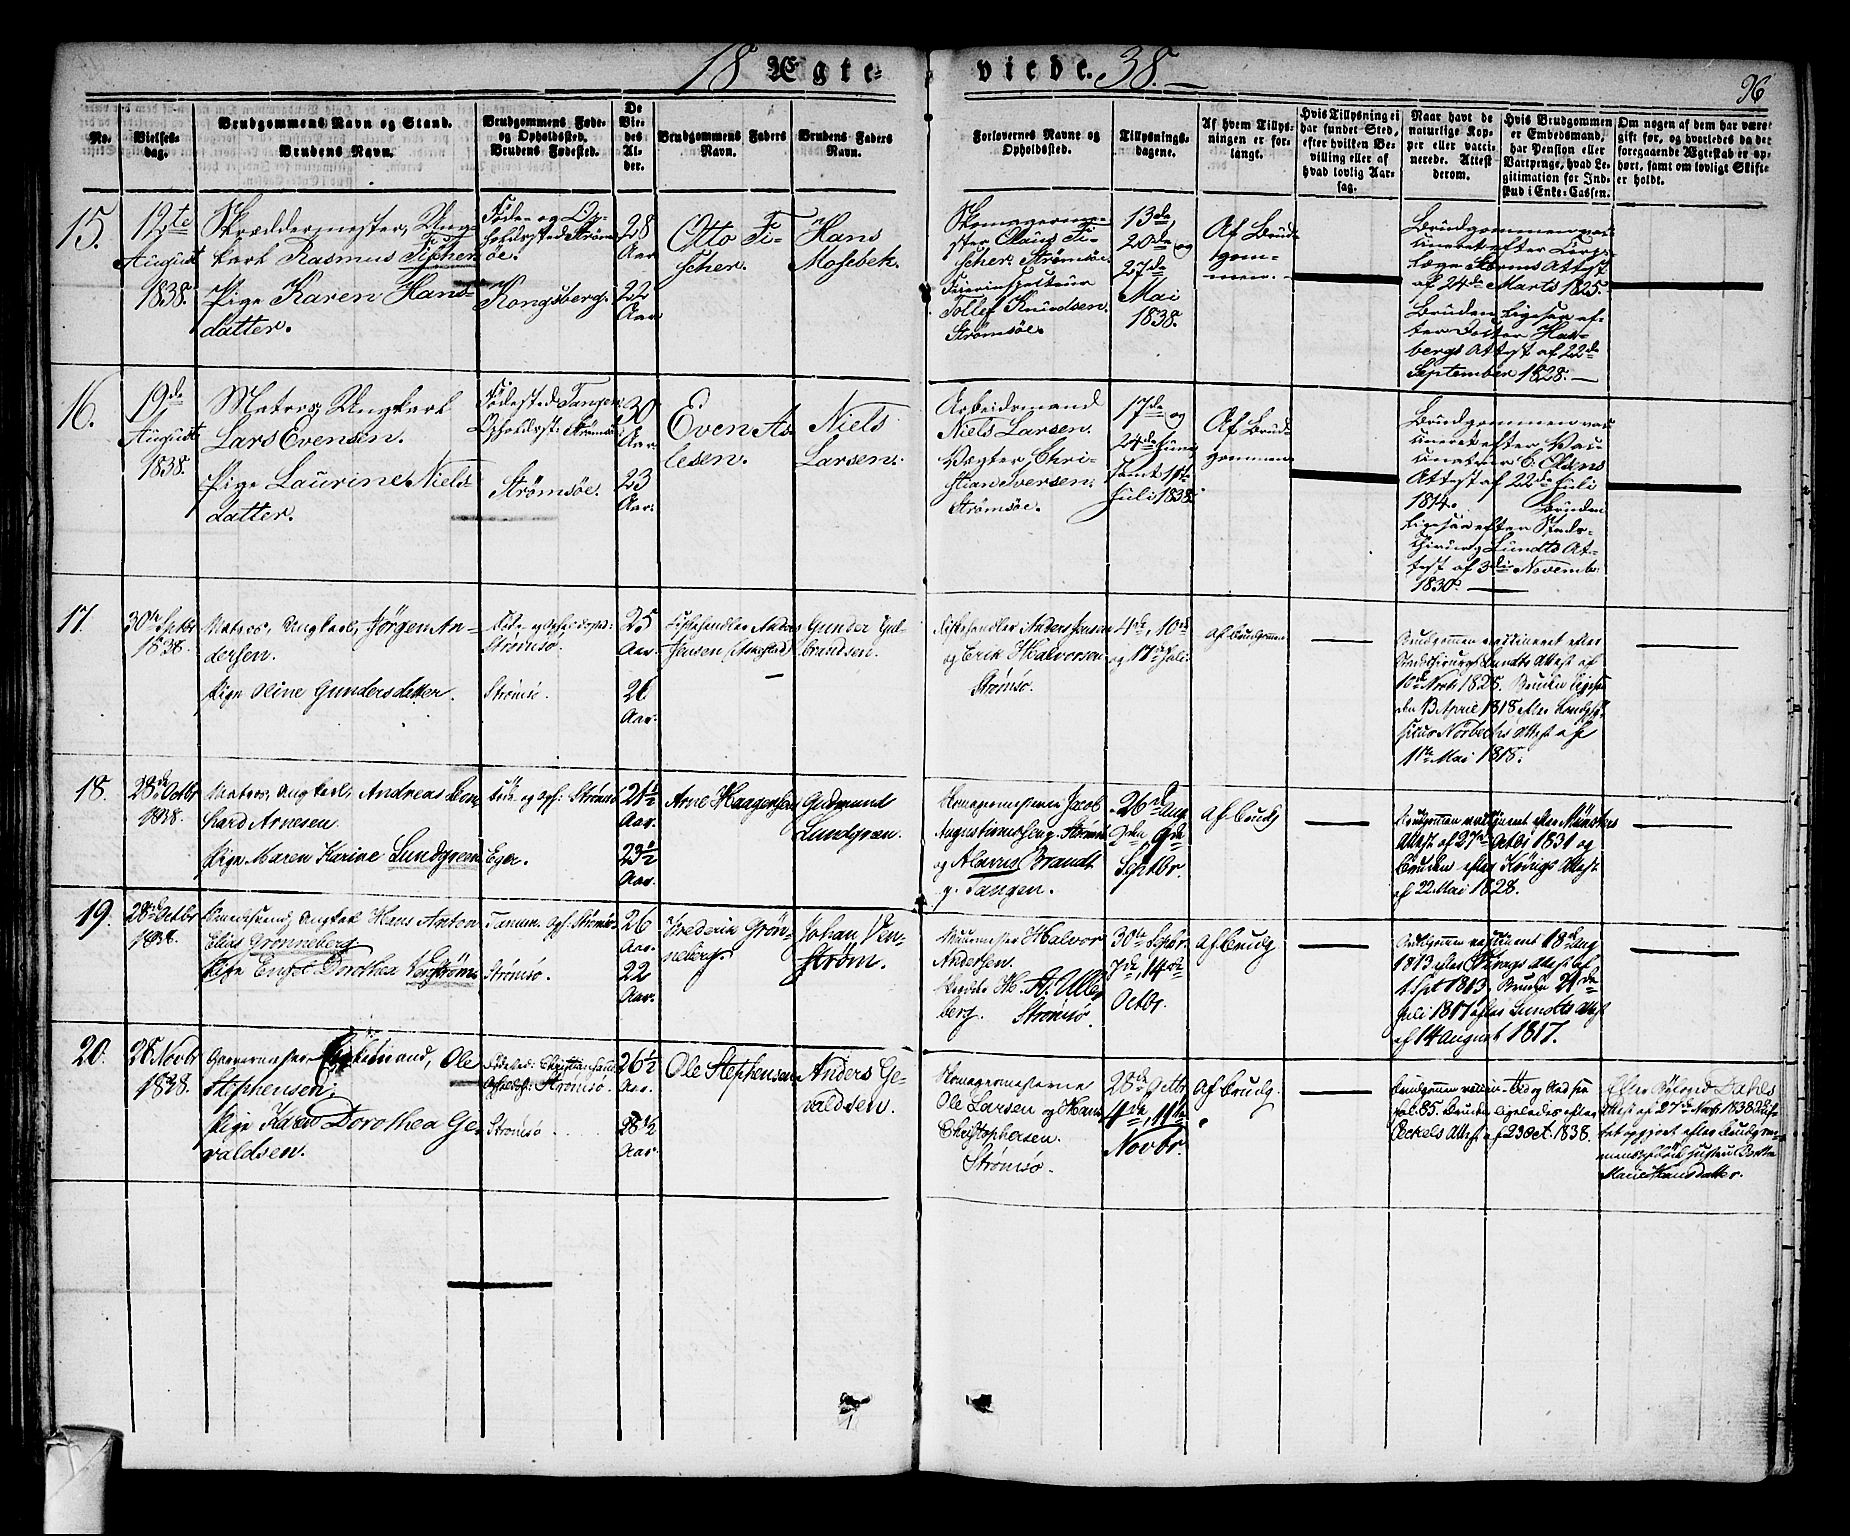 18 Ægte-
viede. 38.
96
No.
Vielses-
dag.
Brudgommens Navn og Stand.
Brudens Navn.
Brudgommens Føde-
og Opholdssted.
Brudens Fødested.
De
Vie-
des
Al-
der.
Brudgommens Faders
Navn.
Brudens Faders
Navn.
Forlovernes Navne og
Opholdssted.
Tillysnings-
dagene.
Af hvem Tillys-
ningen er for-
langt.
Hvis Tillysning ei
har fundet Sted,
efter hvilken Be-
villing eller af
hvad lovlig Aar-
sag.
Naar havt de
naturlige Kop-
per eller vacci-
nerede. Attest
derom.
Hvis Brudgommen
er Embedsmand,
har Pension eller
Vartpenge, hvad Le-
gitimation for Ind-
skud i Enke-Cassen.
Om nogen af dem har været
gift før, og hvorledes da det
foregaaende Ægteskab er op-
hørt, samt om lovligt Skifte
er holdt.
15.
12te
August
1838.
Skræddermester, Ung-
karl Rasmus Fischer
Pige Karen Hans-
datter.
Føde- og Op-
holdssted Strøms-
øe.
Kongsberg.
28
Aar
22
Aar
Otto Fi-
scher.
Hans
Mosebek.
Skomagerme-
ster Olaus Fi-
scher. Strømsøe.
Feierinspecteur
Tollef Knudsen.
Strømsøe.
13de
20de og
27de
Mai
1838.
Af Brud-
gom-
men.
Brudgommen vac-
cineret efter Corps-
læge Storms Attest
af 24de Marts 1825.
Bruden ligesaa ef-
ter Doctor Han-
bergs Attest af 22de
September 1828.
16.
19de
August
1838.
Matros, Ungkarl
Lars Evensen.
Pige Laurine Niels-
datter.
Fødested Tangen
Opholdsst. Strømsøe
Strømsøe.
30
Aar.
23
Aar.
Even As-
lesen.
Niels
Larsen.
Arbeidsmand
Niels Larsen.
Vægter Chri-
stian Iversen.
Strømsøe.
17de og
24de Juni
samt 1ste
Juli 1838.
Af Brud-
gommen
Brudgommen vac-
cineret efter Vac-
cinatør C. Olsens
Attest af 22de Juli
1814. Bruden
ligesaa efter Stads-
chirurg Lundts At-
test af 3die Novemb:
1830.
17.
30te Sptbr
1838.
Matros, Ungkarl, Jörgen An-
dersen.
Pige Oline Gundersdatter.
Föde- og Opholdssted:
Strömsö.
Strömsö.
25
Aar.
26
Aar.
Fiskehandler Anders
Jensen (Askestad)
Gunder Gul-
brandsen.
Fiskehandler Anders Jensen
og Erik Halvorsen
Strömsö.
4de, 10de
og 17de Juli.
Af Brudgommen
Brudgommen vaccineret efter
Stadschirurg Lundts Attest af
10de Novbr 1828. Bruden ligesaa
den 13 April 1818 efter
Nörbechs Attest af
1ste Mai 1818.
18.
28de Octbr
1838.
Matros, Ungkarl, Andreas Bern-
hard Arnesen.
Pige Maren Karine Lundgreen
Föde og Oph: Strömsö
Eger.
24½
Aar.
23½
Aar.
Arne Haagensen
Gudmund
Lundgreen.
Skomagermesterne Jacob
Augustinussen. Strömsö
og Alavus Brandt
p. Tangen.
26de Aug
2den 9de
Septbr.
Af Brudg
Brudgommen vaccineret efter Münsters
Attest af 27de Octbr 1831 og
Bruden efter Königs Attest
af 22 Mai 1828.
19.
28de Octbr
1838.
Ungkarl Hans Anton
Elias Grönneberg
Pige Engel Dorothea Venström
Tanum. Oph: Strömsö
Strömsö.
26
Aar.
22
Aar.
Frederik Grön-
neberg.
Johan Ven-
ström.
Muurmester Halvor
Andersen.
H. A. Uller-
berg. Strömsö.
30te Septbr.
7de, 14de
Octbr.
Af Brudg
Brudgommen vaccineret 18de Aug
1813 efter Königs Attest af
1 Spt 1813. Bruden 21de
Juli 1817 efter Lundts Attest
af 14 August 1817.
20.
28 Novbr
1838.
Garvermester, Enkemand, Ole
Stephensen.
Pige Karen Dorothea Ge-
valdsen.
Födested: Christiansand
Opholdst: Strömsö.
Strömsö
26½
Aar.
28½
Aar.
Ole Stephensen
Anders Ge-
valdsen.
Skomagermesterne
Ole Larsen og Hans
Christophersen.
Strömsö.
28de Octbr
4de, 11te
Novbr.
Af Brudg.
Brudgommen vaccin.
fol. 85. Bruden ligeledes efter
Beckels Attest af 23 Oct. 1838.
Efter Dahls
Attest af 27de Novbr 1838
efter Brudgom-
mens
Marie Hansdatter.